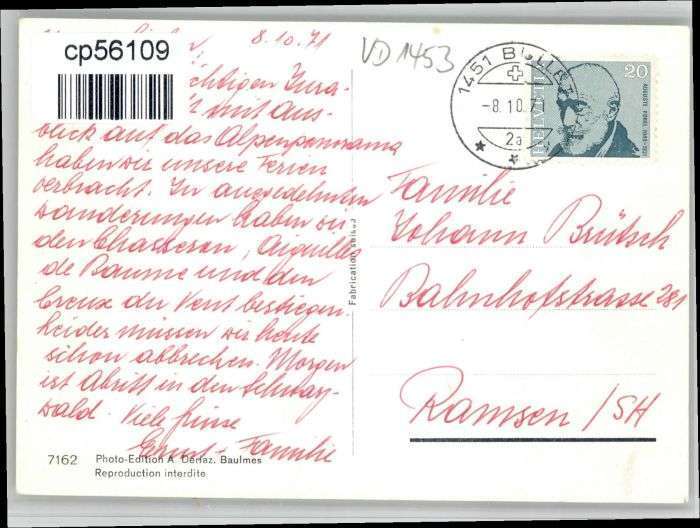 8.10.71
cp56109
VD 1453
ächtigen Jura-
mit Aus-
blick auf das Alpenpanorama
haben wir unsere Ferien
verbracht. In ausgedehnten
Wanderungen haben wir
den Chasseron, Aiguilles
de Baume und den
Creux du Vent bestiegen.
Leider müssen wir heute
schon abbrechen. Morgen
ist Abritt in den Schwarz-
wald. Viele grüsse
Ernst - Familie
7162 Photo-Edition A. Deriaz. Baulmes
Reproduction interdite
Fabrication suisse
1451 BULLET
-8.10.
2a
HELVETIA
20
AUGUSTE FOREL 1848-1931
Familie
Johann Brütsch
Bahnhofstrasse 281
Ramsen / SH